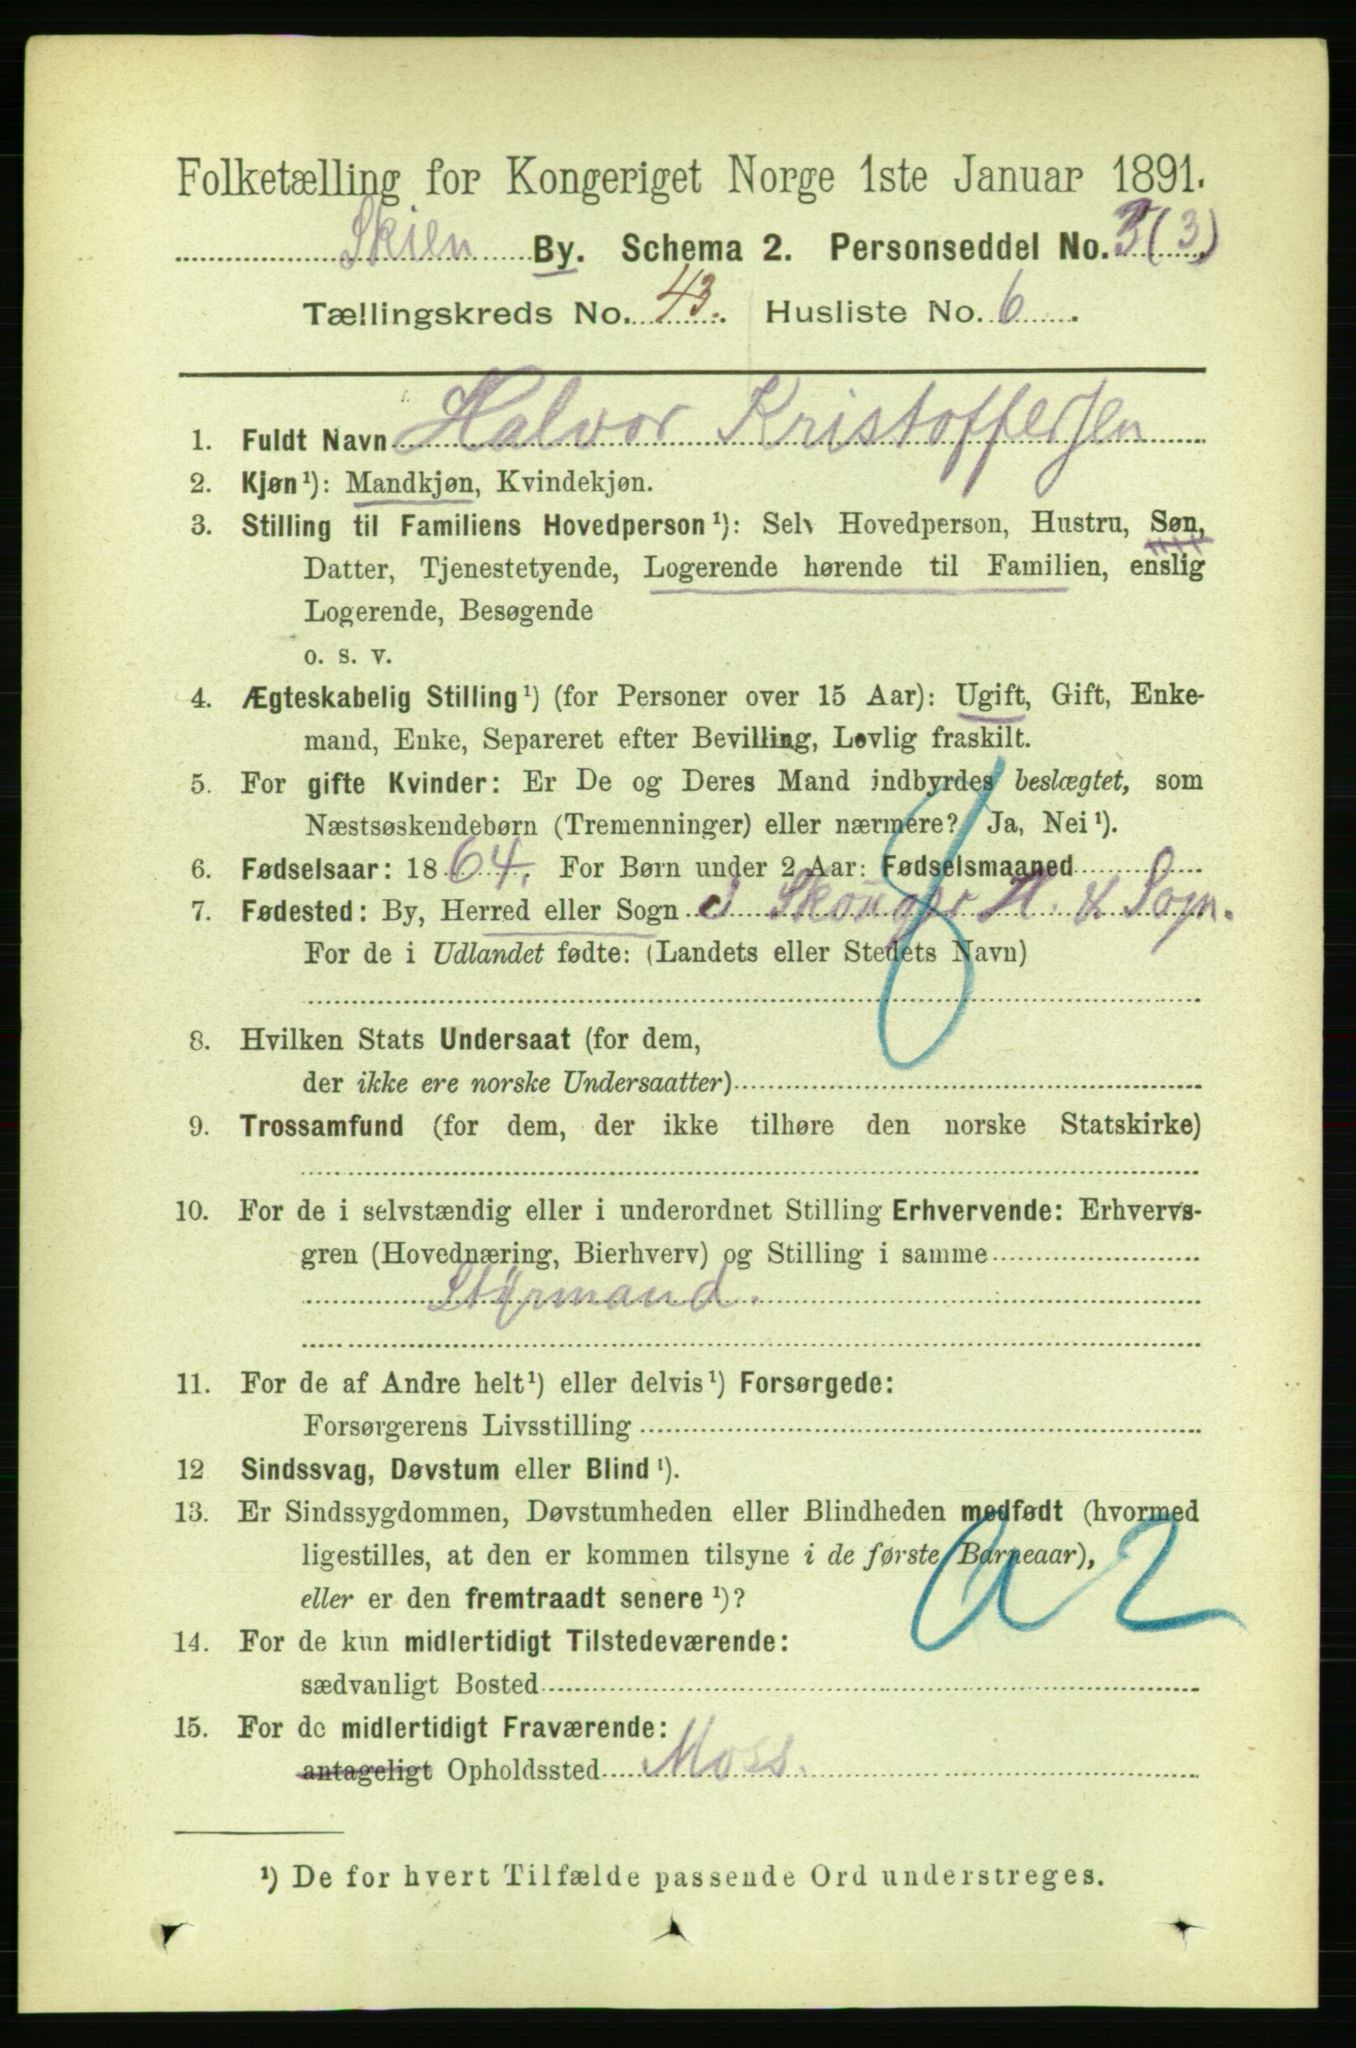 Folketælling for Kongeriget Norge 1ste Januar 1891.
Skien By. Schema 2. Personseddel No. 3 (3)
Tællingskreds No. 43. Husliste No. 6.
1. Fuldt Navn Halvor Kristoffersen
2. Kjøn¹): Mandkjøn, Kvindekjøn.
3. Stilling til Familiens Hovedperson¹): Selv Hovedperson, Hustru, Søn,
Datter, Tjenestetyende, Logerende hørende til Familien, enslig
Logerende, Besøgende
o. s. v.
4. Ægteskabelig Stilling¹) (for Personer over 15 Aar): Ugift, Gift, Enke-
mand, Enke, Separeret efter Bevilling, Lovlig fraskilt.
5. For gifte Kvinder: Er De og Deres Mand indbyrdes beslægtet, som
Næstsøskendebørn (Tremenninger) eller nærmere? Ja, Nei¹).
6. Fødselsaar: 1864. For Børn under 2 Aar: Fødselsmaaned
7. Fødested: By, Herred eller Sogn Skouger H. & Sogn.
For de i Udlandet fødte: (Landets eller Stedets Navn)
8. Hvilken Stats Undersaat (for dem,
der ikke ere norske Undersaatter)
9. Trossamfund (for dem, der ikke tilhøre den norske Statskirke)
10. For de i selvstændig eller i underordnet Stilling Erhvervende: Erhvervs-
gren (Hovednæring, Bierhverv) og Stilling i samme
Styrmand.
11. For de af Andre helt¹) eller delvis¹) Forsørgede:
Forsørgerens Livsstilling
12 Sindssvag, Døvstum eller Blind¹).
13. Er Sindssygdommen, Døvstumheden eller Blindheden medfødt (hvormed
ligestilles, at den er kommen tilsyne i de første Barneaar),
eller er den fremtraadt senere¹)?
a 2
14. For de kun midlertidigt Tilstedeværende:
sædvanligt Bosted
15. For de midlertidigt Fraværende:
antageligt Opholdssted Moss.
¹) De for hvert Tilfælde passende Ord understreges.